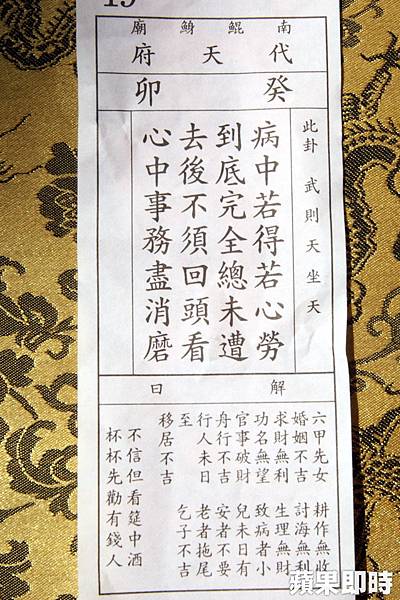 19
南鯤鯓廟
代天府
癸卯
此卦 武則天坐天
病中若得若心勞
到底完全總未遭
去後不須回頭看
心中事務盡消磨
解曰
六甲先女 耕作無收
婚姻不吉 討海無利
求財無利 生理無財
功名無望 致病者小
官事破財 兒未日有
舟行不吉 安者不要
行人未日 老者拖尾
至 乞子不吉
移居不吉
不信但看筵中酒
杯杯先勸有錢人
蘋果即時